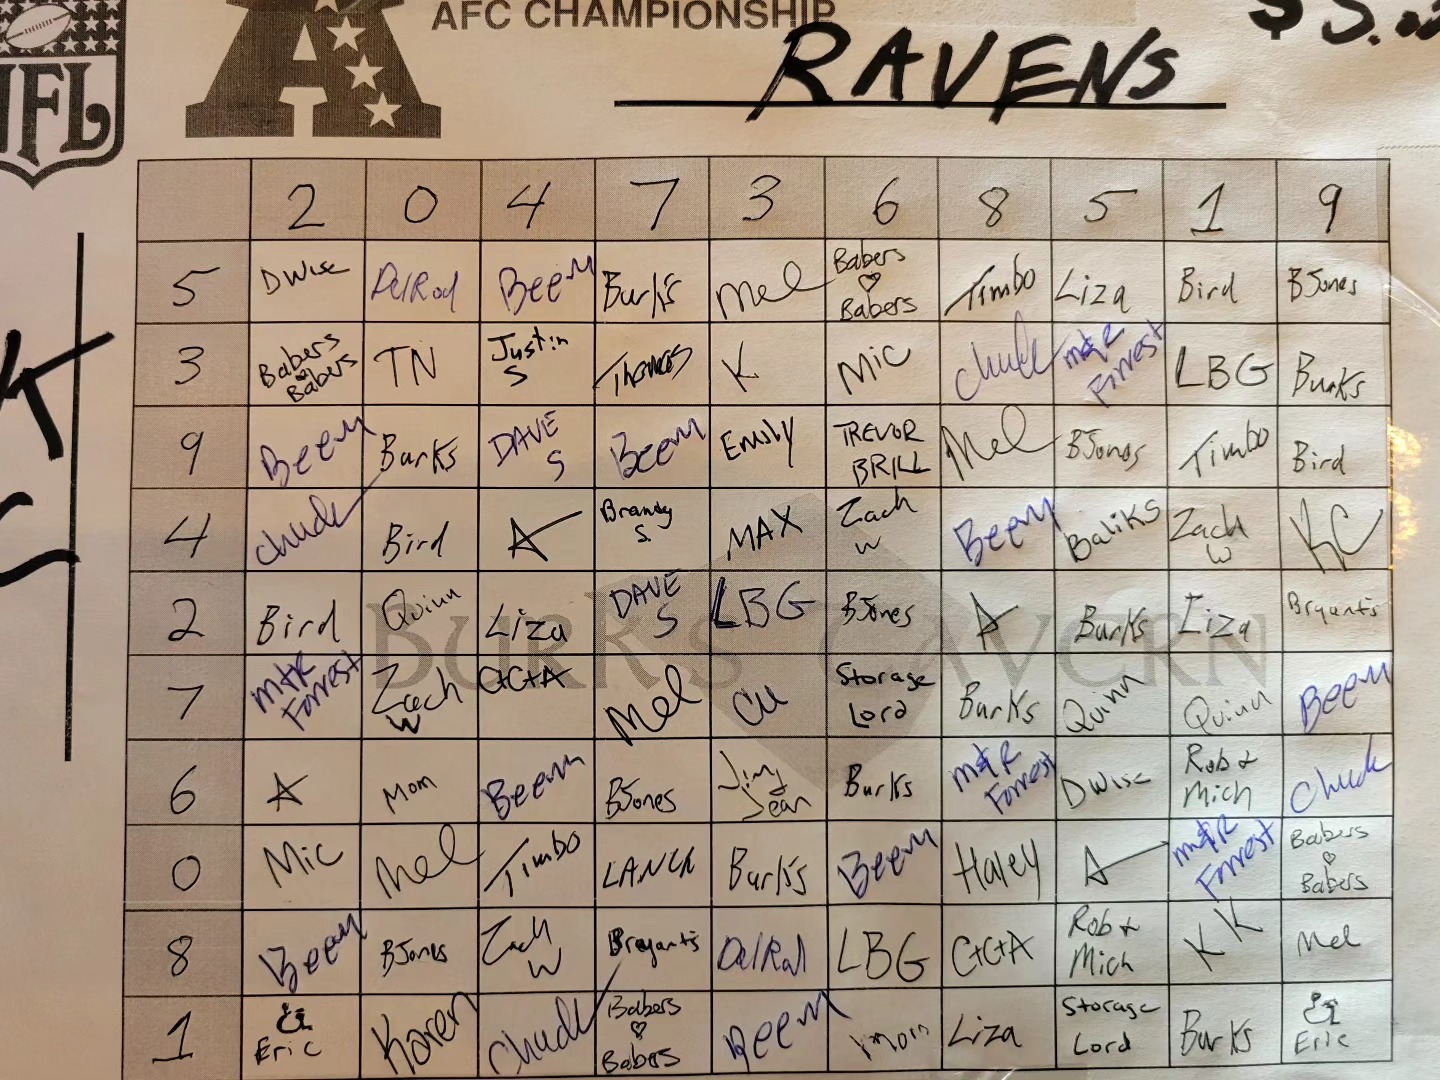 NFL
AFC CHAMPIONSHIP
$5.00
RAVENS
2 0 4 7 3 6 8 5 1 9
5 DWise DelRod Beem Burks Mel Babers ♡ Babers Timbo Liza Bird BJones
3 Babers ♡ Babers TN Justin S Thomas K Mic Chuck M&R Forrest LBG Burks
9 Beem Burks DAVE S Beem Emily TREVOR BRILL Mel BJones Timbo Bird
4 Chuck Bird A Brandy S. MAX Zach W Beem Baliks Zach W KC
2 Bird Quinn Liza DAVE S LBG BJones A Burks Liza Bryants
BURK'S CAVERN
7 M&R Forrest Zach W C+C+A Mel CU Storage Lord Burks Quinn Quinn Beem
6 A Mom Beem BJones Jim Jean Burks M&R Forrest DWise Rob & Mich Chuck
0 Mic Mel Timbo Burks Beem Haley A M&R Forrest Babers ♡ Babers
8 Beem BJones Zach W Bryants DelRod LBG C+C+A Rob & Mich KK Mel
1 & Eric Karen Chuck Babers ♡ Babers Beem Mom Liza Storage Lord Burks & Eric